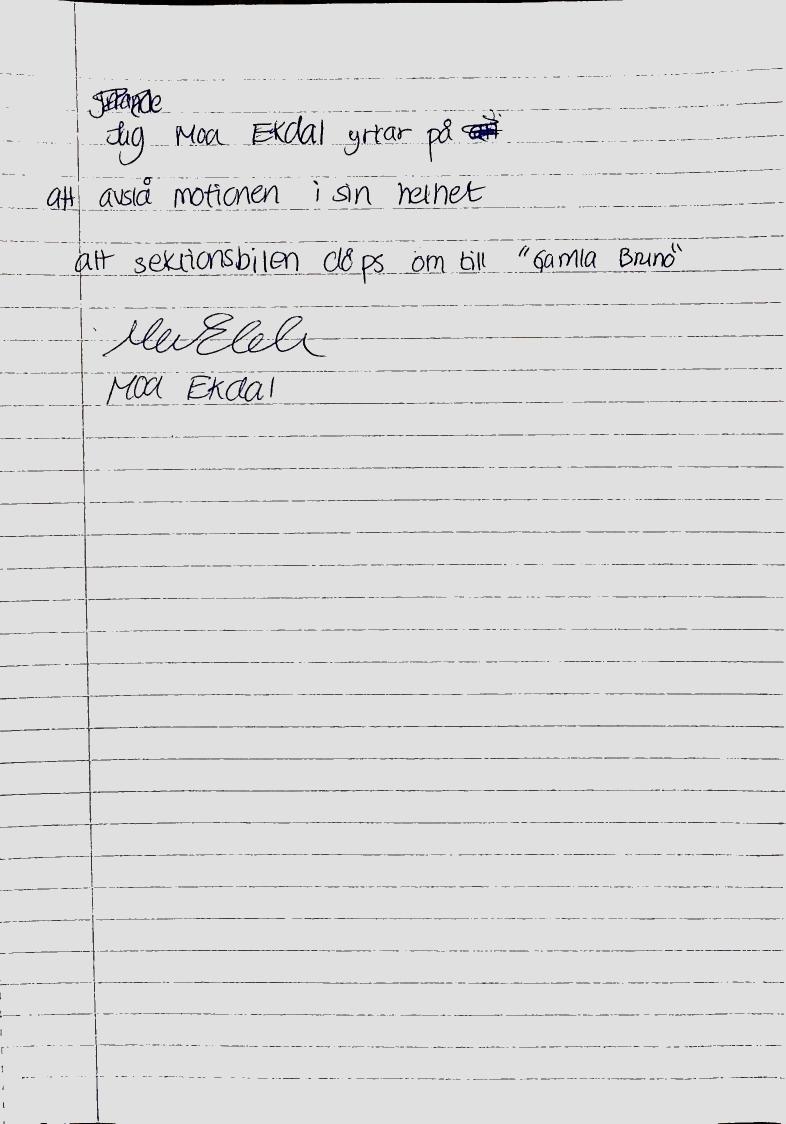 Jag Moa Ekdal yrkar på
att avslå motionen i sin helhet
att sektionsbilen döps om till "Gamla Bruno"
Moa Ekdal